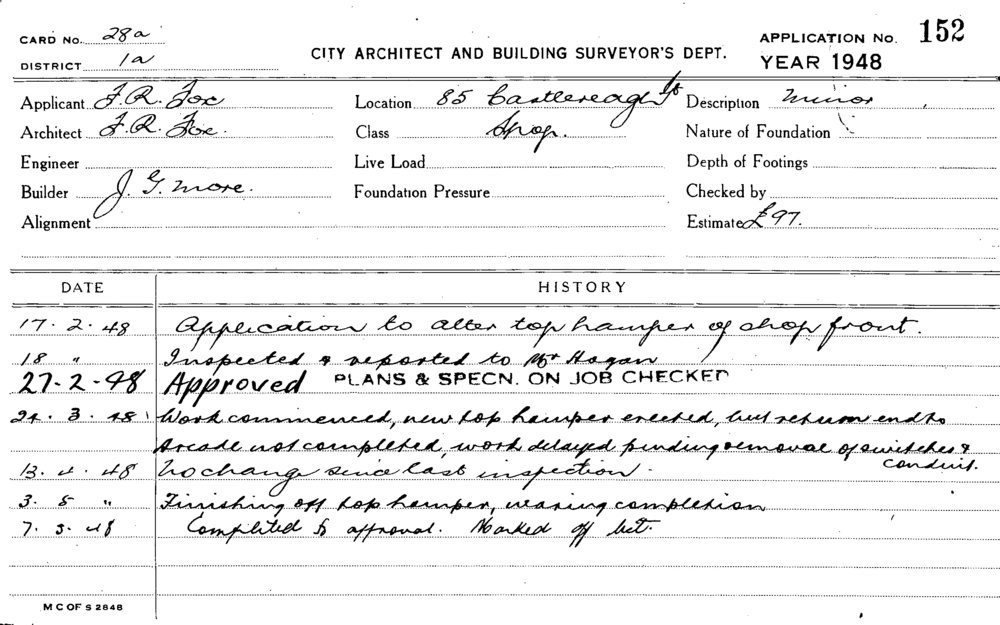 CARD No. 28a
DISTRICT 1a
CITY ARCHITECT AND BUILDING SURVEYOR'S DEPT.
APPLICATION No. 152
YEAR 1948
Applicant F. R. Fox Location 85 Castlereagh St Description Minor
Architect F. R. Fox. Class Shop. Nature of Foundation
Engineer Live Load Depth of Footings
Builder J. G. More. Foundation Pressure Checked by
Alignment Estimate £97.
DATE HISTORY
17. 2. 48 Application to alter top hamper of shop front.
18 " Inspected & reported to Mr Hogan
27-2-48 Approved PLANS & SPECN. ON JOB CHECKED
24. 3. 48 Work commenced, new top hamper erected, but return end to
Arcade not completed, work delayed pending removal of switches &
conduit.
13. 4. 48 No change since last inspection.
3. 5 " Finishing off top hamper, nearing completion
7. 5. 48 Completed to approval. Marked off
M C OF S 2848